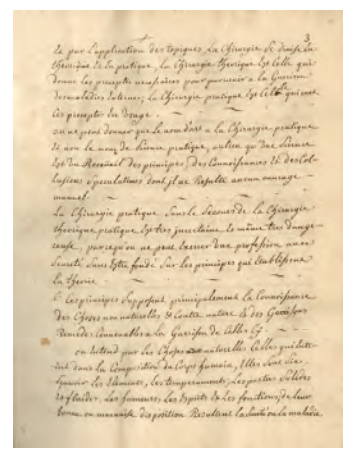 3
Et par l'application des topiques, la Chirurgie se divise en
theorique et en pratique, la Chirurgie theorique Est Celle qui
donne les preceptes necessaires pour parvenir a la Guerison
des maladies Externes; la Chirurgie pratique Est Celle qui met
Ces preceptes En usage.
on ne peut donner que le nom d'art a la Chirurgie pratique
Et non le nom de Science pratique, autien qu'une Science
Est un Recueuil des principes, des Connoissances Et des Col-
lusions Speculatives dont il ne Resulte aucun ouvrage
manuel.
La Chirurgie pratique Sans le Secours de la Chirurgie
theorique pratique, Est tres incertaine, Et même tres dange-
reuse, parcequ'on ne peut Exercer une profession avec
Seureté Sans Estre fondé Sur les principes qui Etablissent
la theorie.
Ces principes Supposent principalement la Connoissance
des Choses non naturelles Et Contre nature, Et des
Remede Convenables a la Guerison de Celles Cy.
on Entend par les Choses naturelles Celles qui Entrent
dans la Composition du Corps humain, Elles Sont
Sçavoir les Elements, les temperaments, les parties Solides
Et fluides, les humeurs, les Esprits Et les fonctions, de leur
bonne ou mauvaise disposition Resultent la Santé ou la maladie.